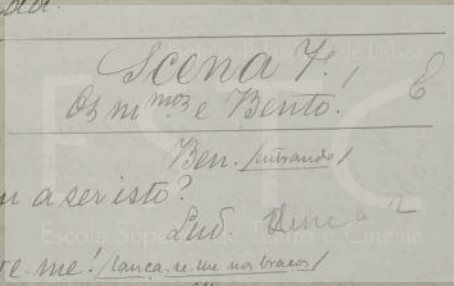 Scena 7ª,
Os m.mos e Bento.
Ben. /entrando/
a ser isto?
Lud.
me! /lança-se-lhe nos braços/
ESTC
Escola Superior de Teatro e Cinema
de Lisboa